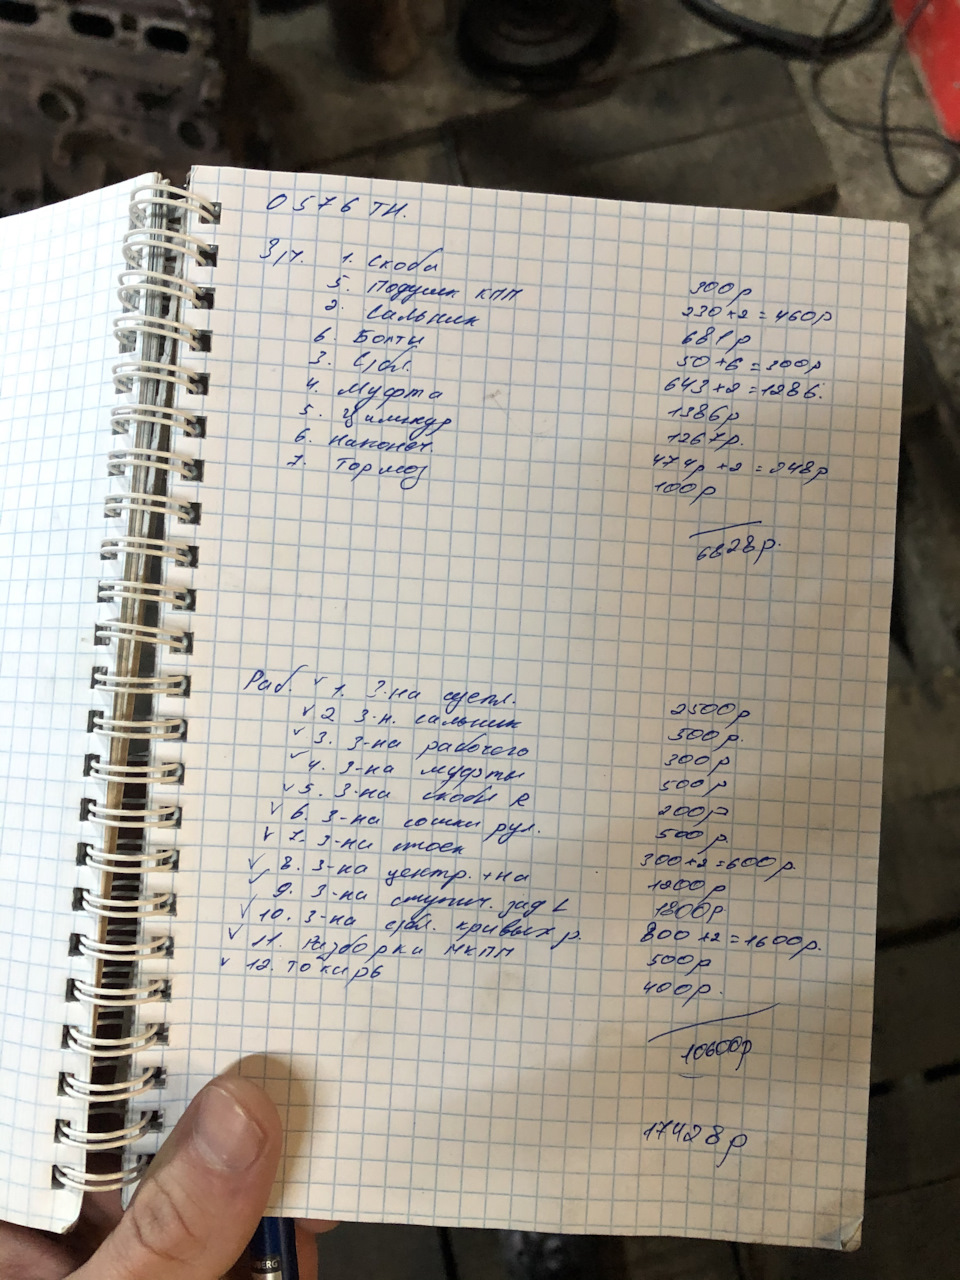 0576 ТН.
З/ч. 1. Скоба 300р
5. Подушк КПП 230*2=460р
2. Сальник 681р
6. Болты 50*6=300р
3. С/бл. 643*2=1286.
4. Муфта 1386р
5. Цилиндр 1267р.
6. Наконеч. 474р*2=948р
7. Тормоз 100р
6828р.
Раб. ✓ 1. З-на сцепл. 2500р
✓ 2. З-н. сальник 500р.
✓ 3. З-на рабочого 300р
✓ 4. З-на муфты 500р
✓ 5. З-на скобы R 200р
✓ 6. З-на сошки рул. 500р
✓ 7. З-на стоек 300*2=600р.
✓ 8. З-на центр. +на 1200р
✓ 9. З-на ступич. зад L 1800р
✓ 10. З-на с/бл. кривых р. 800*2=1600р.
✓ 11. Разборка МКПП 500р
✓ 12. Токарь 400р.
10600р
17428р
BERG